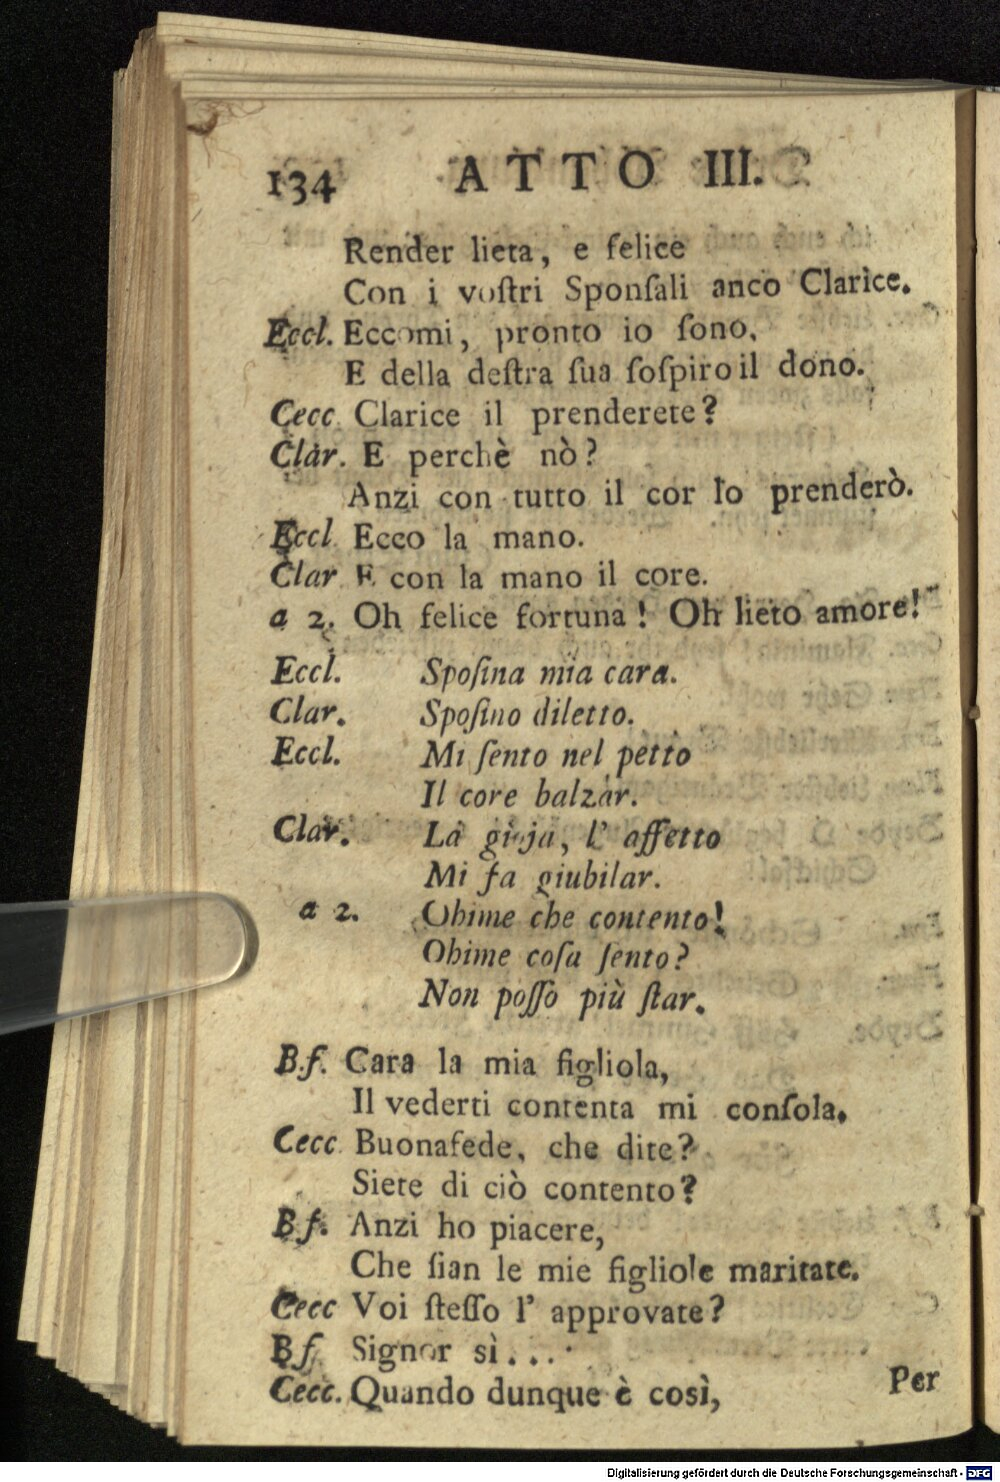 134 ATTO III.
Render lieta, e felice
Con i voſtri Sponſali anco Clarice.
Eccl. Eccomi, pronto io ſono.
E della deſtra ſua ſoſpiro il dono.
Cecc. Clarice il prenderete?
Clar. E perchè nò?
Anzi con tutto il cor lo prenderò.
Eccl. Ecco la mano.
Clar E con la mano il core.
a 2. Oh felice fortuna! Oh lieto amore!
Eccl. Spoſina mia cara.
Clar. Spoſino diletto.
Eccl. Mi ſento nel petto
Il core balzar.
Clar. La gioja, l' affetto
Mi fa giubilar.
a 2. Ohime che contento!
Ohime coſa ſento?
Non poſſo più ſtar.
B.f. Cara la mia figliola,
Il vederti contenta mi conſola.
Cecc. Buonafede, che dite?
Siete di ciò contento?
B.f. Anzi ho piacere,
Che ſian le mie figliole maritate.
Cecc Voi ſteſſo l' approvate?
B.f. Signor sì...
Cecc. Quando dunque è così,
Per
Digitalisierung gefördert durch die Deutsche Forschungsgemeinschaft - DFG